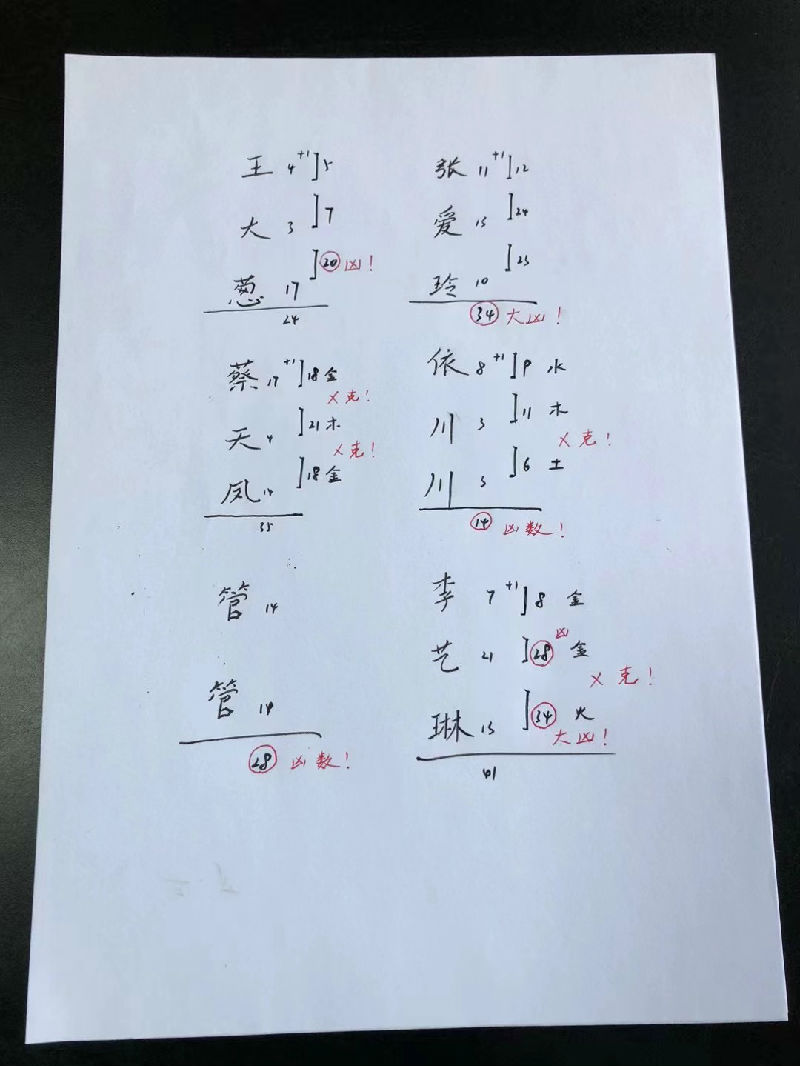 王 4 +1 ] 5
大 3 ] 7
] 20 凶!
葱 17
24
张 11 +1 ] 12
爱 13 ] 24
] 23
玲 10
34 大凶!
蔡 17 +1 ] 18 金
× 克!
天 4 ] 21 木
× 克!
凤 14 ] 18 金
35
依 8 +1 ] 9 水
川 3 ] 11 木
× 克!
川 3 ] 6 土
14 凶数!
管 14
管 14
28 凶数!
李 7 +1 ] 8 金
凶
艺 21 ] 28 金
× 克!
琳 13 ] 34 火
大凶!
41